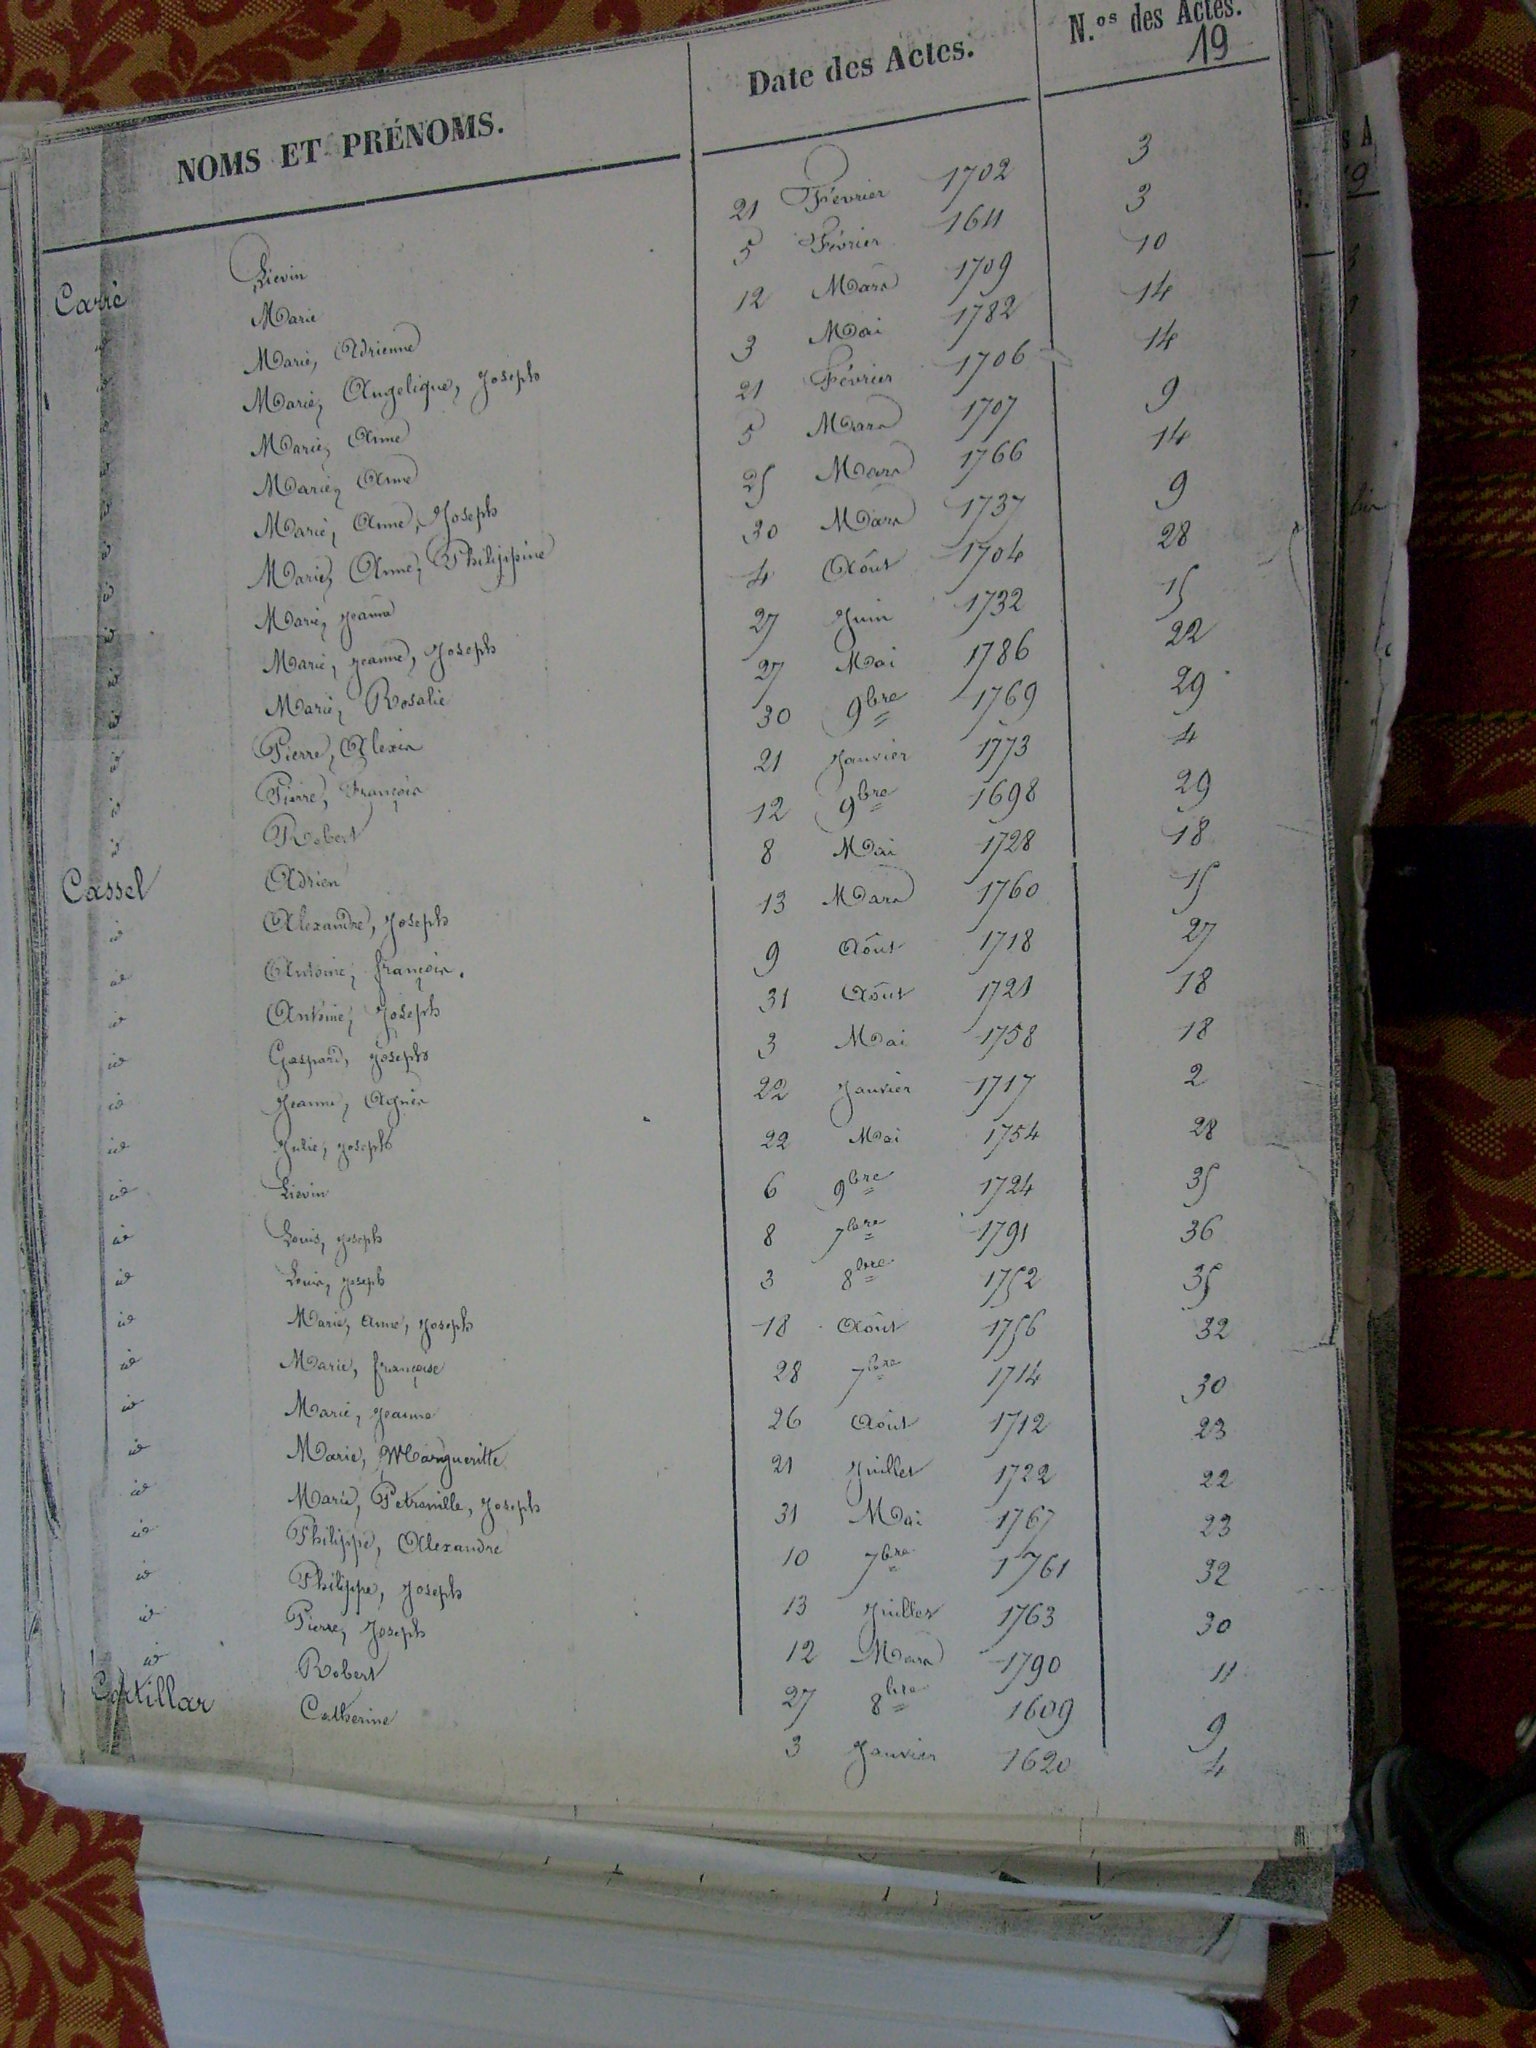 NOMS ET PRÉNOMS. Date des Actes. N.os des Actes.
19
Carré Liévin 21 Février 1702 3
id Marie 5 Février 1611 3
id Marie, Adrienne 12 Mars 1709 10
id Marie, Angelique, Joseph 3 Mai 1782 14
id Marie, Anne 21 Février 1706 14
id Marie, Anne 5 Mars 1707 9
id Marie, Anne, Joseph 25 Mars 1766 14
id Marie, Anne, Philippine 30 Mars 1737 9
id Marie, Jeanne 4 Août 1704 28
id Marie, Jeanne, Joseph 27 Juin 1732 15
id Marie, Rosalie 27 Mai 1786 22
id Pierre, Alexis 30 9bre 1769 29
id Pierre, François 21 Janvier 1773 4
id Robert 12 9bre 1698 29
Cassel Adrien 8 Mai 1728 18
id Alexandre, Joseph 13 Mars 1760 15
id Antoine, françois. 9 Août 1718 27
id Antoine, Joseph 31 Août 1721 18
id Gaspard, Joseph 3 Mai 1758 18
id Jeanne, Agnès 22 Janvier 1717 2
id Julie, Joseph 22 Mai 1754 28
id Liévin 6 9bre 1724 35
id Louis, Joseph 8 7bre 1791 36
id Louis, Joseph 3 8bre 1752 35
id Marie, anne, Joseph 18 Août 1756 32
id Marie, françoise 28 7bre 1714 30
id Marie, Jeanne 26 Août 1712 23
id Marie, Margueritte 21 Juillet 1722 22
id Marie, Petronille, Joseph 31 Mai 1767 23
id Philippe, Alexandre 10 7bre 1761 32
id Philippe, Joseph 13 Juillet 1763 30
id Pierre, Joseph 12 Mars 1790 11
id Robert 27 8bre 1609 9
Catherine 3 Janvier 1620 4